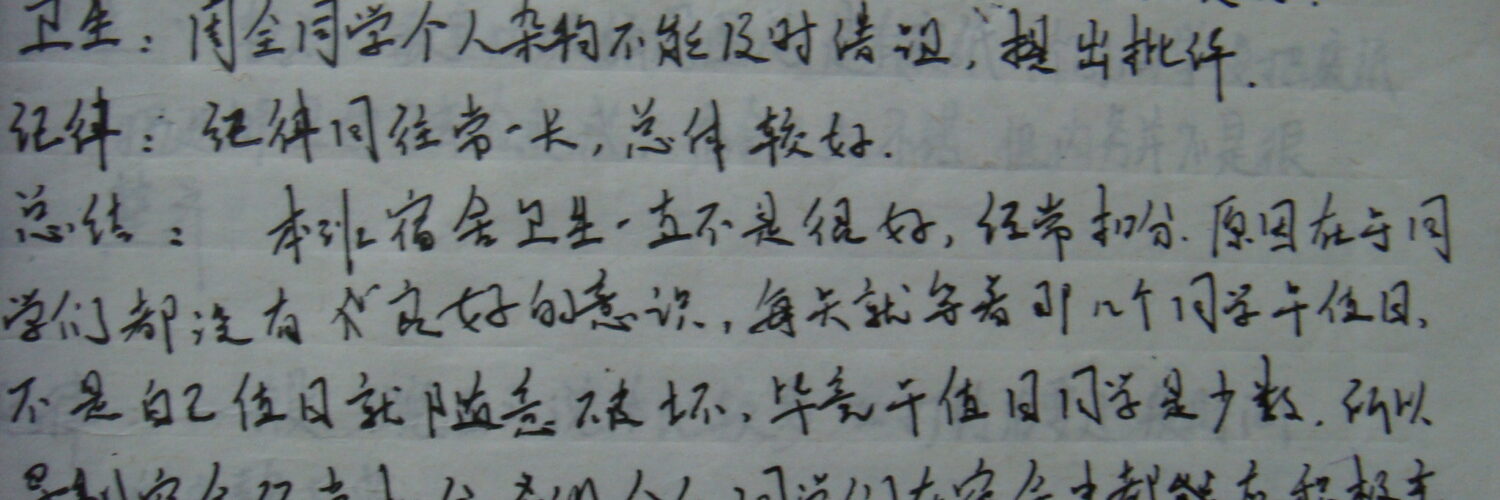 卫生：周全同学个人杂物不能及时清理，提出批评.
纪律：纪律同往常一样，总体较好.
总结：本班宿舍卫生一直不是很好，经常扣分.原因在于同
学们都没有良好的意识，每天就等着那几个同学干值日，
不是自己值日就随意破坏，毕竟干值日同学是少数.所以